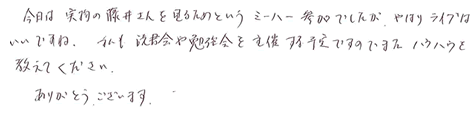 今日は 実物の藤井さんを見るためという ミーハー 参加でしたが、やはりライブは
いいですね。 私も 読書会や勉強会を主催する予定ですのでまた ノウハウを
教えてください。
ありがとうございます。